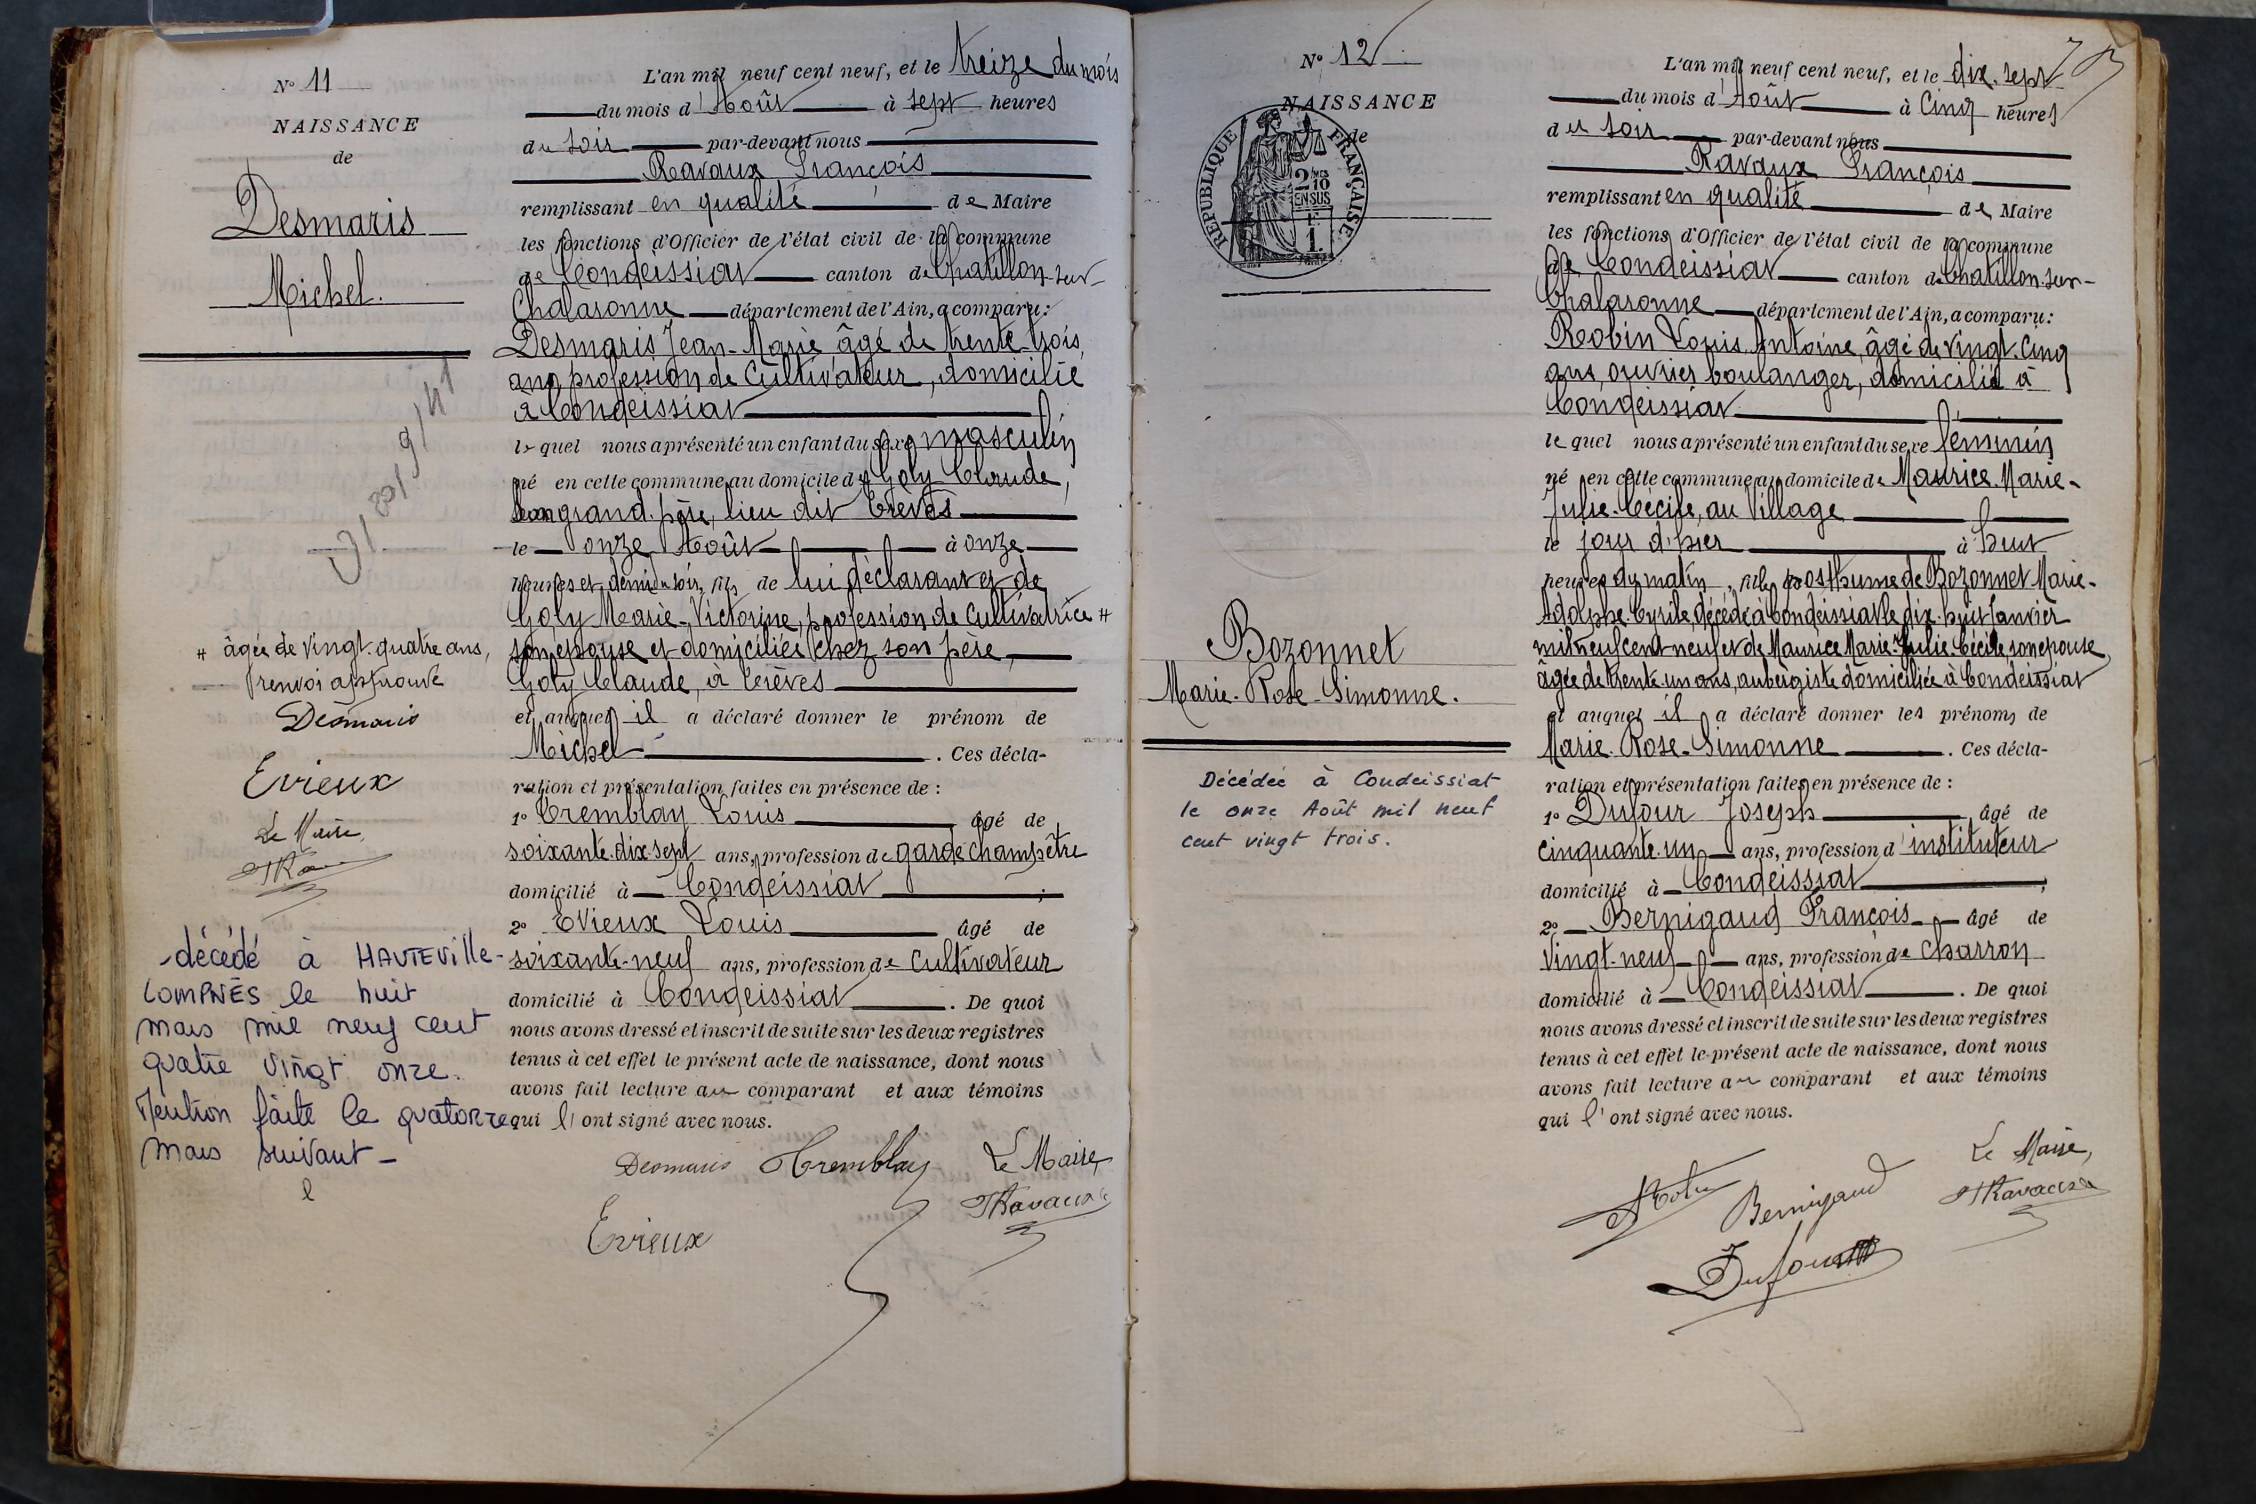 N° 11
NAISSANCE
de
Desmaris
Michel.
âgée de vingt-quatre ans,
renvoi approuvé
Desmaris
Evieux
Le Maire,
décédé à HAUTEVille-
LOMPNES le huit
mars mil neuf cent
quatre vingt onze.
Mention faite le quatorze
mars suivant -
L'an mil neuf cent neuf, et le treize du mois
du mois d'Août à sept heures
du soir par-devant nous
Ravaux François
remplissant en qualité de Maire
les fonctions d'Officier de l'état civil de la commune
de Condeissiat canton de Chatillon-sur-
Chalaronne département de l'Ain, a comparu:
Desmaris Jean-Marie âgé de trente-trois
ans profession de cultivateur, domicilié
à Condeissiat
lequel nous a présenté un enfant du sexe masculin
né en cette commune au domicile de Goly Claude,
son grand-père, lieu dit
le onze Août à onze
heures et demi du soir, fils de lui déclarant et de
Goly Marie-Victorine, profession de cultivatrice #
son épouse et domiciliée chez son père,
Goly Claude, à
et auquel il a déclaré donner le prénom de
Michel . Ces décla-
ration et présentation faites en présence de :
1° Tremblay Louis âgé de
soixante-dix-sept ans, profession de garde champêtre
domicilié à Condeissiat ;
2° Evieux Louis âgé de
soixante-neuf ans, profession de cultivateur
domicilié à Condeissiat . De quoi
nous avons dressé et inscrit de suite sur les deux registres
tenus à cet effet le présent acte de naissance, dont nous
avons fait lecture au comparant et aux témoins
qui l'ont signé avec nous.
Desmaris Tremblay Le Maire,
Ravaux
Evieux
N° 12
NAISSANCE
de
REPUBLIQUE FRANÇAISE
2/10
EN SUS
1
Bozonnet
Marie-Rose-Simonne.
Décédée à Condeissiat
le onze Août mil neuf
cent vingt trois.
L'an mil neuf cent neuf, et le dix-sept
du mois d'Août à cinq heures
du soir par-devant nous
Ravaux François
remplissant en qualité de Maire
les fonctions d'Officier de l'état civil de la commune
de Condeissiat canton de Chatillon-sur-
Chalaronne département de l'Ain, a comparu:
Robin Louis Antoine, âgé de vingt-cinq
ans, ouvrier boulanger, domicilié à
Condeissiat
lequel nous a présenté un enfant du sexe féminin
né en cette commune au domicile de Maurice Marie-
Julie-Cécile, au village
le jour d'hier à huit
heures du matin, fille posthume de Bozonnet Marie-
Adolphe-Cyrile, décédé à Condeissiat le dix-huit Janvier
mil neuf cent neuf et de Maurice Marie-Julie-Cécile son épouse
âgée de trente-un ans, aubergiste domiciliée à Condeissiat
et auquel il a déclaré donner les prénoms de
Marie-Rose-Simonne . Ces décla-
ration et présentation faites en présence de :
1° Dufour Joseph âgé de
cinquante-un ans, profession d'instituteur
domicilié à Condeissiat ;
2° Bernigaud François âgé de
vingt-neuf ans, profession de charron
domicilié à Condeissiat . De quoi
nous avons dressé et inscrit de suite sur les deux registres
tenus à cet effet le présent acte de naissance, dont nous
avons fait lecture au comparant et aux témoins
qui l'ont signé avec nous.
Le Maire,
Robin Bernigaud Ravaux
Dufour